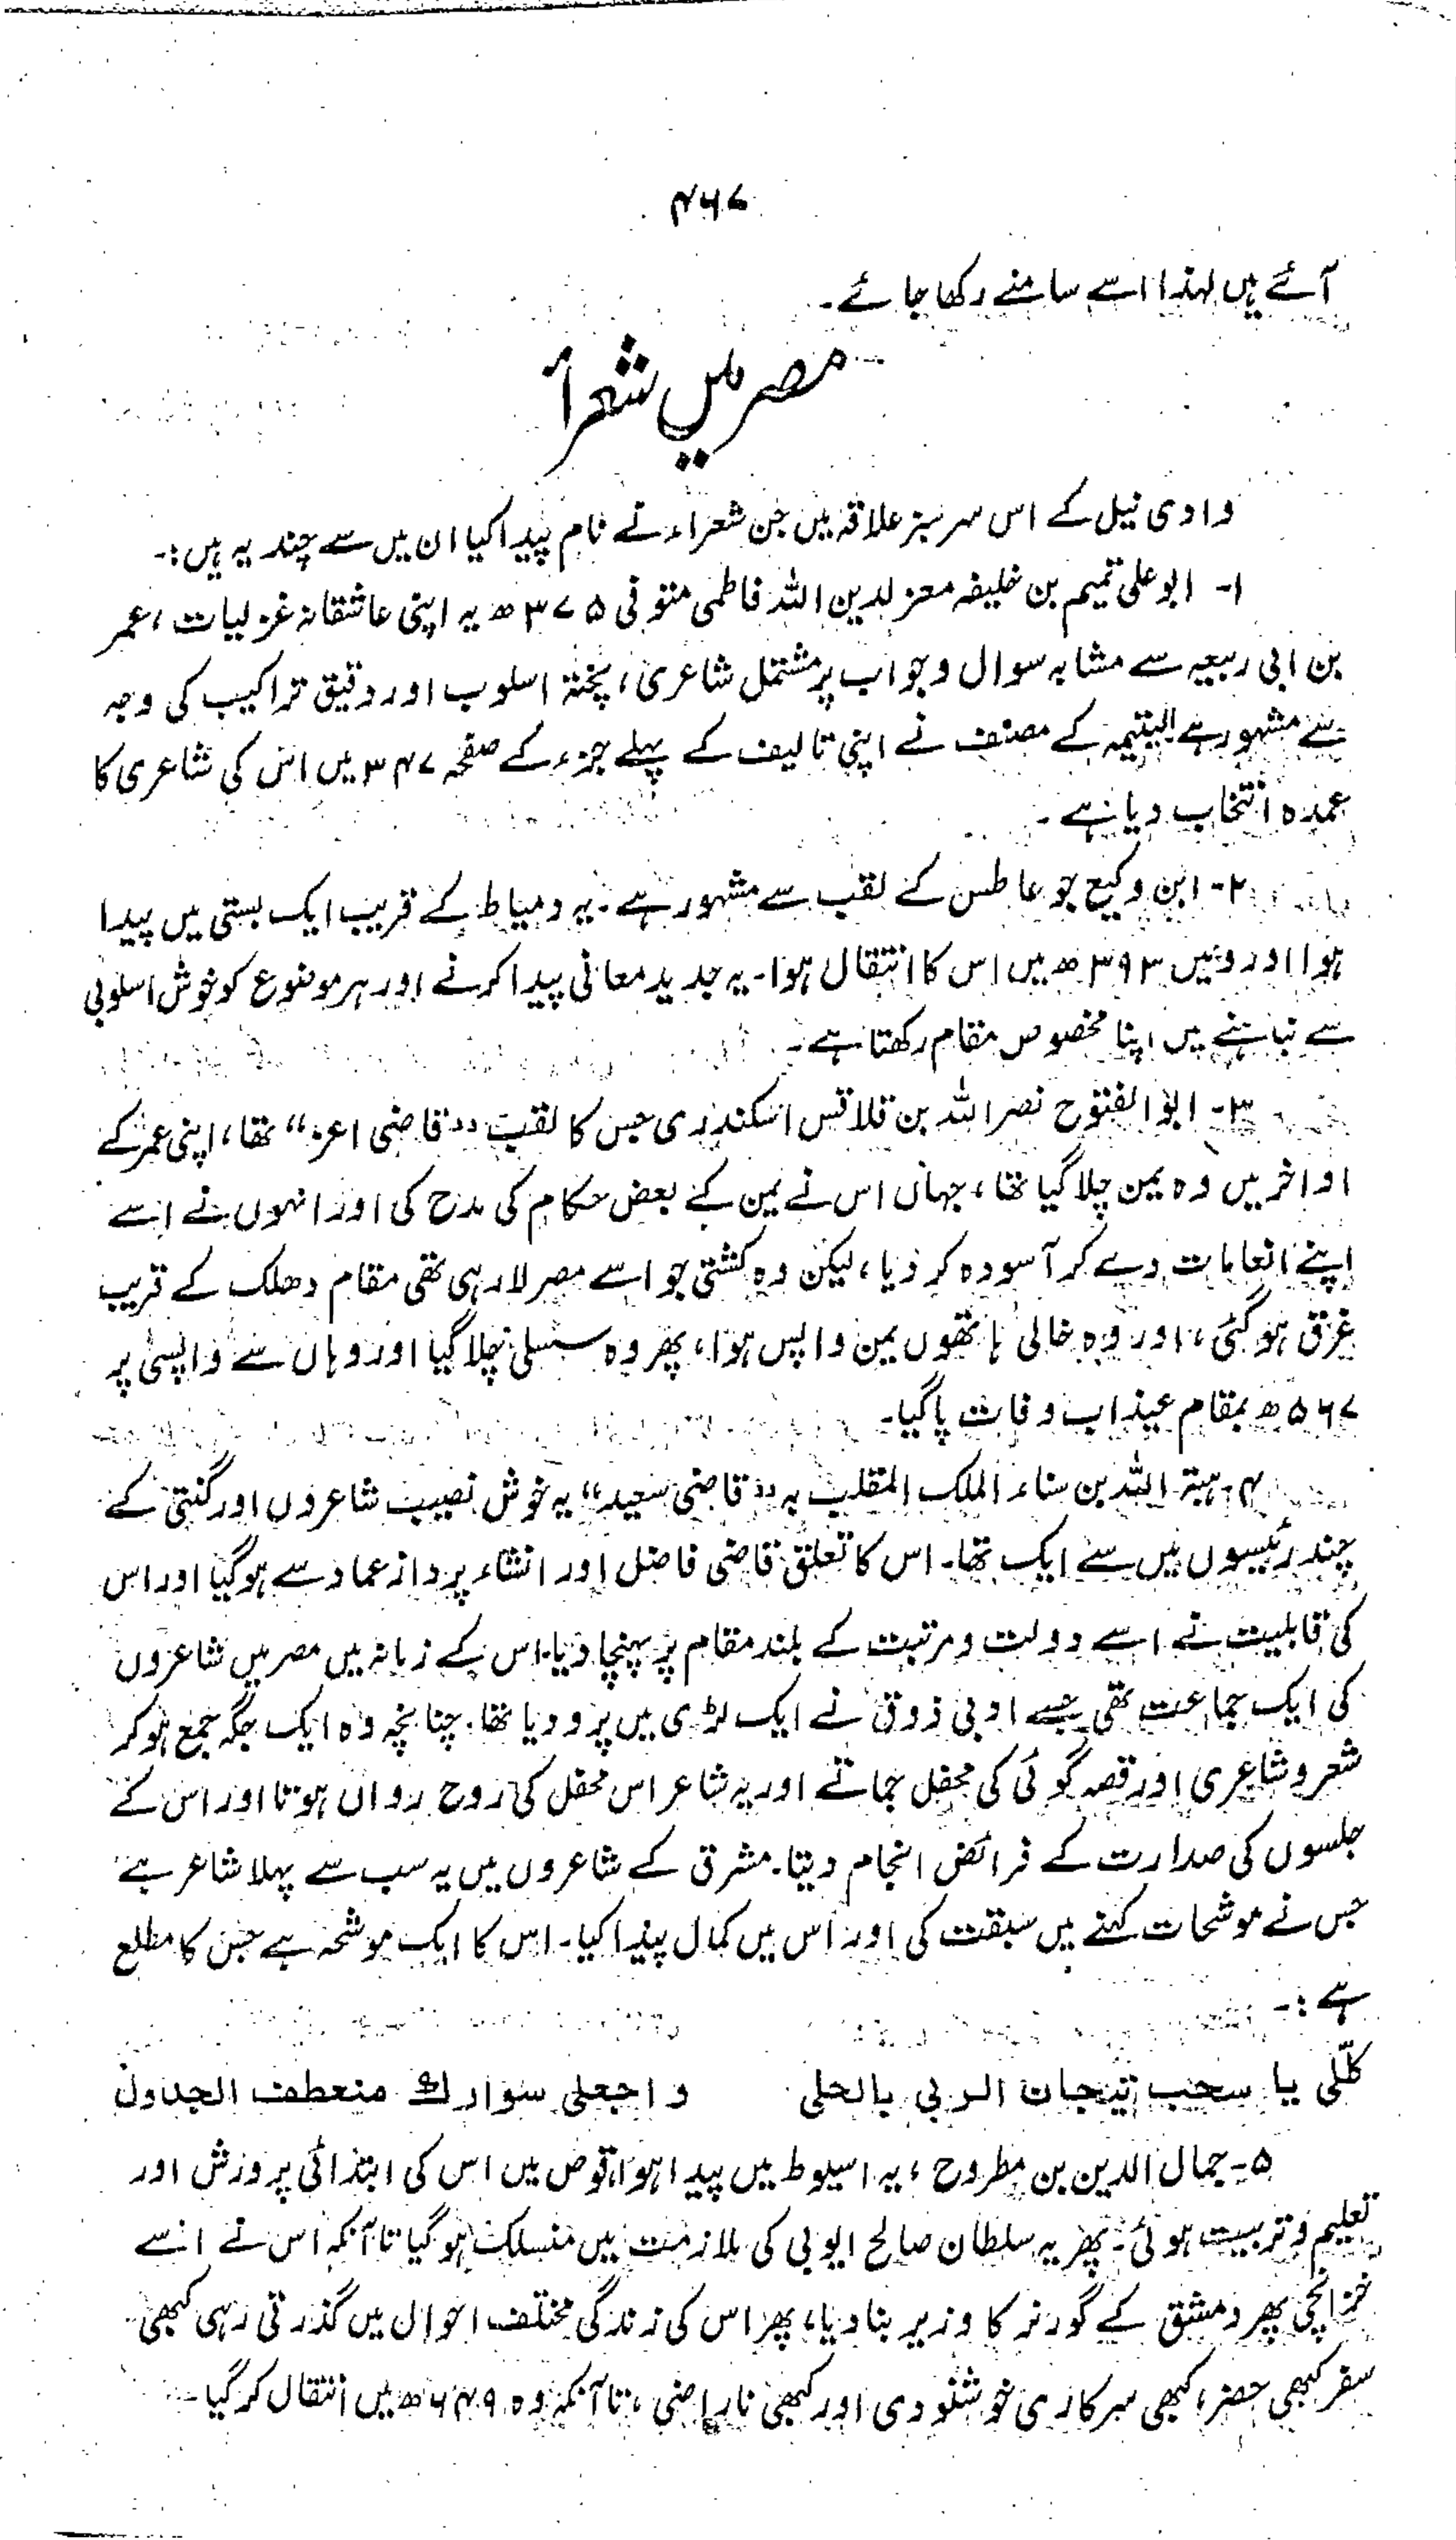 ۴۶۷
آئے ہیں لہٰذا اسے سامنے رکھا جائے۔
مصر میں شعرأ
وادی نیل کے اس سرسبز علاقہ میں جن شعراء نے نام پیدا کیا ان میں سے چند یہ ہیں:۔
۱۔ ابو علی تمیم بن خلیفہ معز لدین اللہ فاطمی متوفی ۳۷۵ھ یہ اپنی عاشقانہ غزلیات، عمر
بن ابی ربیعہ سے مشابہ سوال و جواب پر مشتمل شاعری، پختہ اسلوب اور دقیق تراکیب کی وجہ
سے مشہور ہے الیتیمہ کے مصنف نے اپنی تالیف کے پہلے جزء کے صفحہ ۳۴۷ میں اس کی شاعری کا
عمدہ انتخاب دیا ہے۔
۲۔ ابن وکیع جو عاطس کے لقب سے مشہور ہے۔ یہ دمیاط کے قریب ایک بستی میں پیدا
ہوا اور وہیں ۳۹۳ھ میں اس کا انتقال ہوا۔ یہ جدید معانی پیدا کرنے اور ہر موضوع کو خوش اسلوبی
سے نباہنے میں اپنا مخصوص مقام رکھتا ہے۔
۳۔ ابوالفتوح نصر اللہ بن قلاقس اسکندری جس کا لقب ”قاضی اعز“ تھا، اپنی عمر کے
اواخر میں وہ یمن چلا گیا تھا، جہاں اس نے یمن کے بعض حکام کی مدح کی اور انہوں نے اسے
اپنے انعامات دے کر آسودہ کر دیا، لیکن وہ کشتی جو اسے مصر لا رہی تھی مقام دھلک کے قریب
غرق ہو گئی، اور وہ خالی ہاتھوں یمن واپس ہوا، پھر وہ سسلی چلا گیا اور وہاں سے واپسی پر
۵۶۷ھ بمقام عیذاب وفات پا گیا۔
۴۔ ہبۃ اللہ بن سناء الملک المقلب بہ ”قاضی سعید“ یہ خوش نصیب شاعروں اور گنتی کے
چند رئیسوں میں سے ایک تھا۔ اس کا تعلق قاضی فاضل اور انشاء پرداز عماد سے ہو گیا اور اس
کی قابلیت نے اسے دولت و مرتبت کے بلند مقام پر پہنچا دیا۔ اس کے زمانہ میں مصر میں شاعروں
کی ایک جماعت تھی جسے ادبی ذوق نے ایک لڑی میں پرو دیا تھا۔ چنانچہ وہ ایک جگہ جمع ہو کر
شعر و شاعری اور قصہ گوئی کی محفل جماتے اور یہ شاعر اس محفل کی روح رواں ہوتا اور اس کے
جلسوں کی صدارت کے فرائض انجام دیتا۔ مشرق کے شاعروں میں یہ سب سے پہلا شاعر ہے
جس نے موشحات کہنے میں سبقت کی اور اس میں کمال پیدا کیا۔ اس کا ایک موشحہ ہے جس کا مطلع
ہے:۔
کلّلی یا سحب تیجان الربی بالحلی واجعلی سوارك منعطف الجداول
۵۔ جمال الدین بن مطروح، یہ اسیوط میں پیدا ہوا، قوص میں اس کی ابتدائی پرورش اور
تعلیم و تربیت ہوئی۔ پھر یہ سلطان صالح ایوبی کی ملازمت میں منسلک ہو گیا تا آنکہ اس نے اسے
خزانچی پھر دمشق کے گورنر کا وزیر بنا دیا، پھر اس کی زندگی مختلف احوال میں گذرتی رہی کبھی
سفر کبھی حضر، کبھی سرکاری خوشنودی اور کبھی ناراضی، تا آنکہ وہ ۶۴۹ھ میں انتقال کر گیا۔